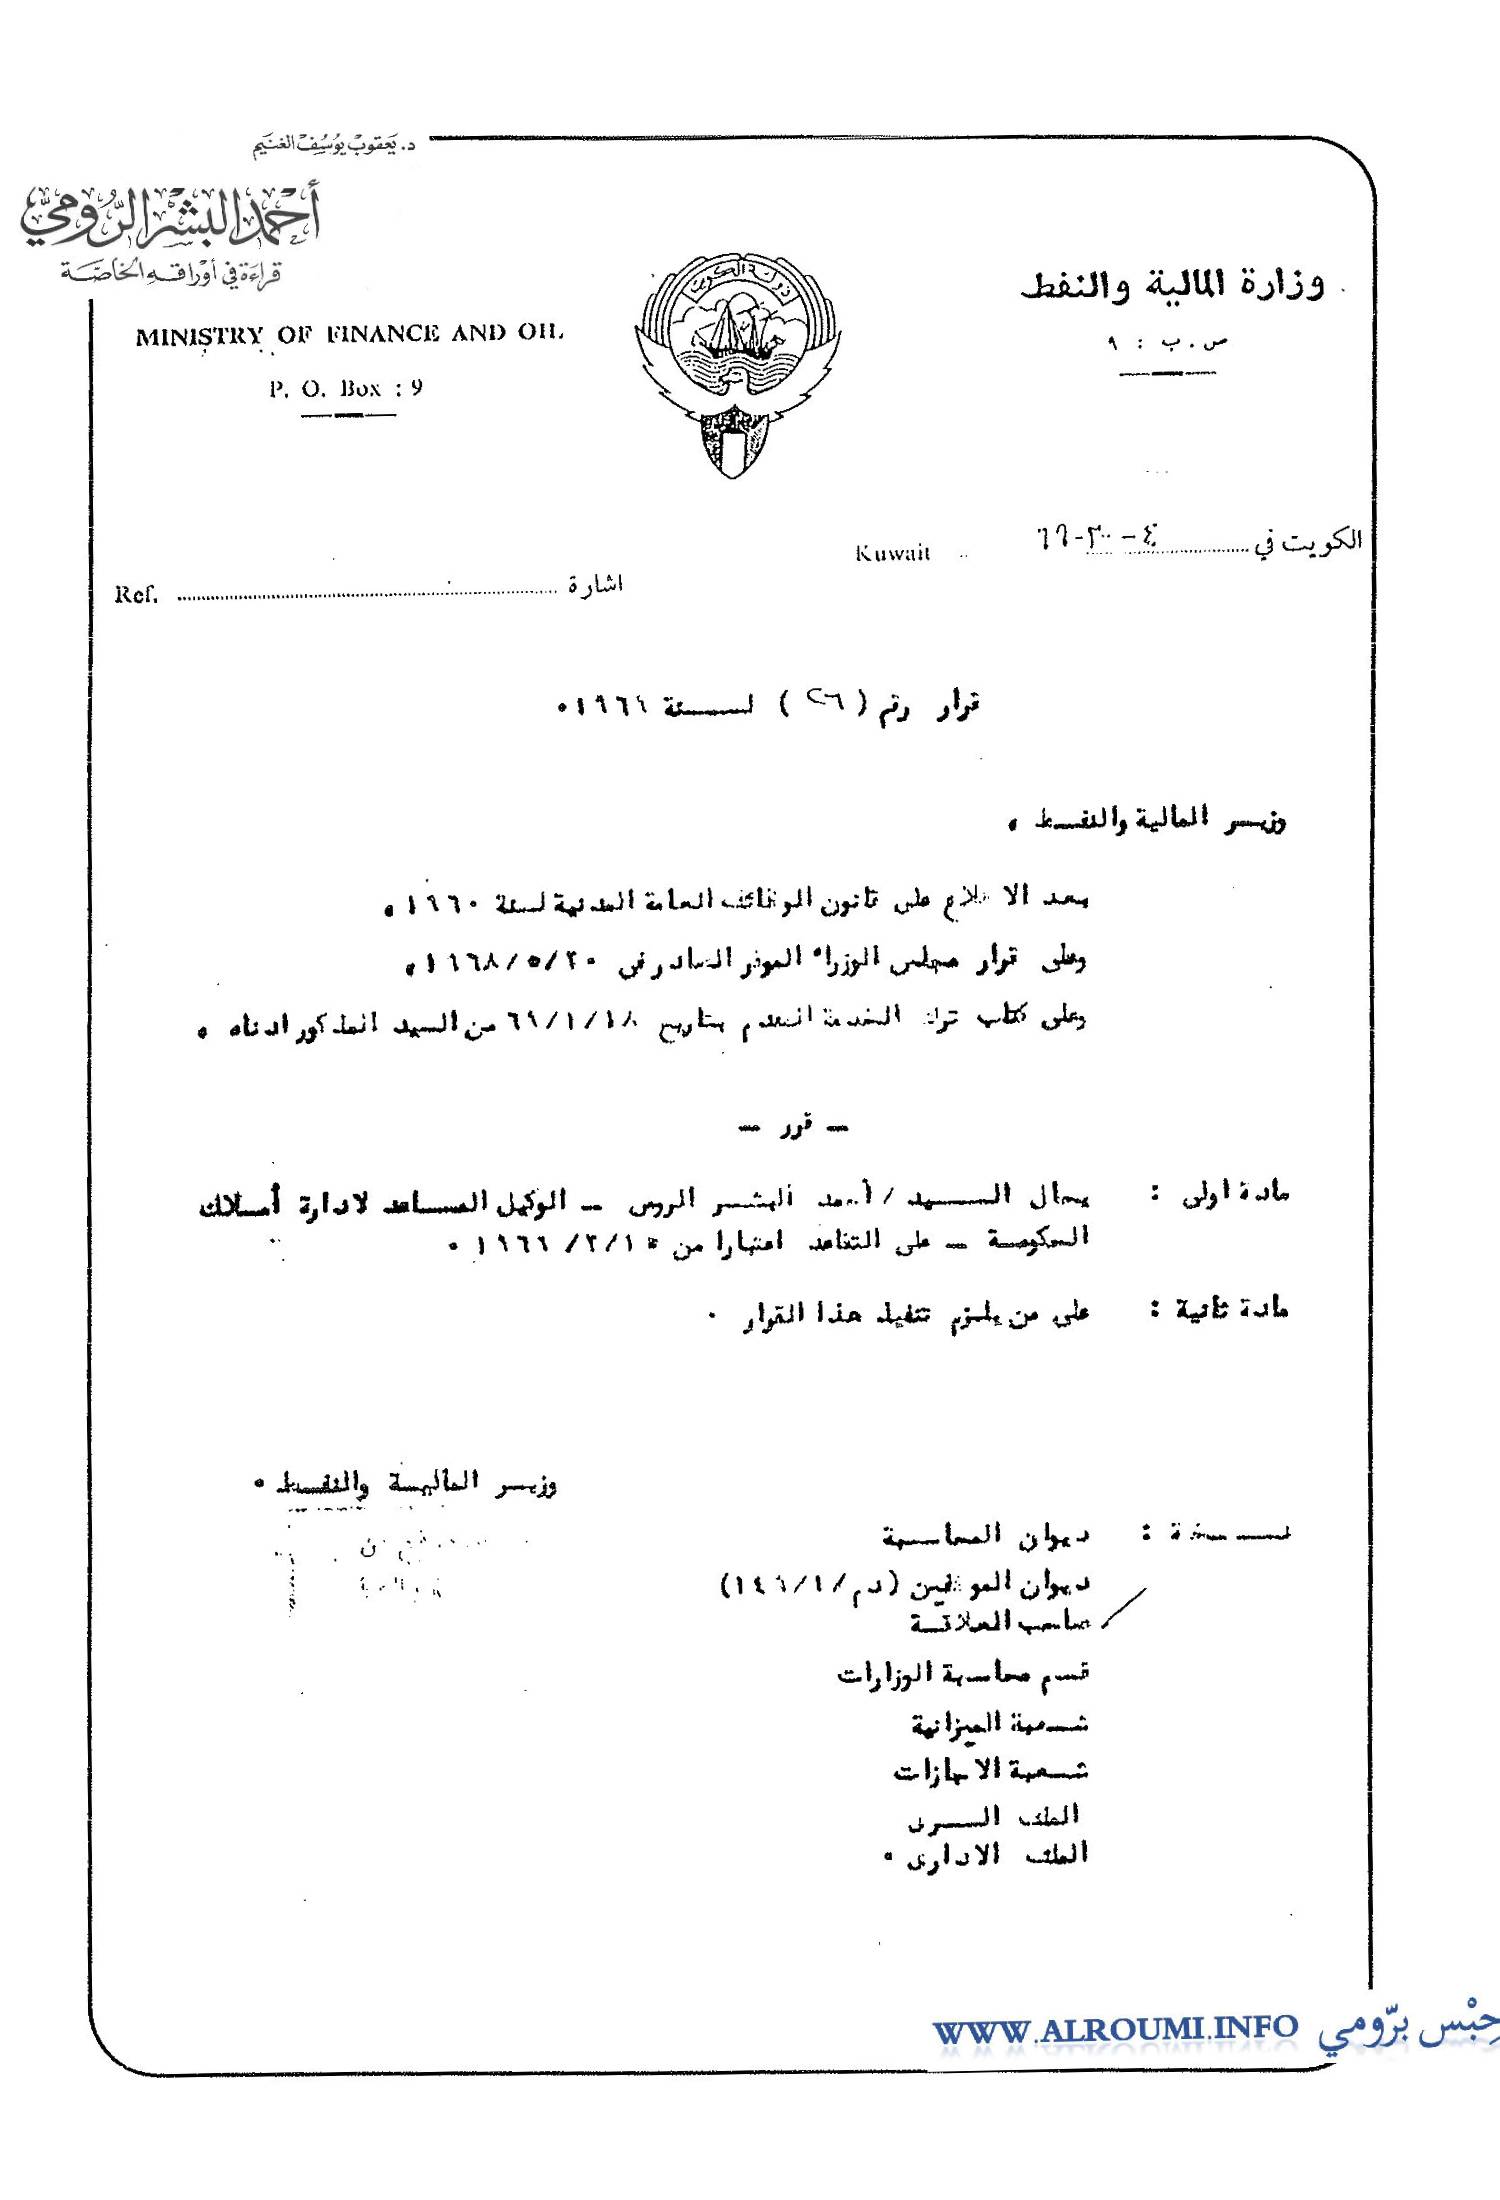 د. يعقوب يوسف الغنيم
أحمد البشر الرومي
قراءة في أوراقه الخاصة
وزارة المالية والنفط
ص . ب : ٩
MINISTRY OF FINANCE AND OIL
P. O. Box : 9
دولة الكويت
الكويت في
Kuwait
Ref. اشارة
قرار رقم (٢٦) لسنة ١٩٦٩.
وزير المالية والنفط ،
بعد الاطلاع على قانون الوظائف العامة المدنية لسنة ١٩٦٠،
وعلى قرار مجلس الوزراء الموقر الصادر في ٢٠/٥/١٩٦٨،
وعلى كتاب ترك الخدمة المقدم بتاريخ ٦٩/١/١٨ من السيد المذكور ادناه ،
— قرر —
مادة اولى : يحال السيد / أحمد البشر الرومى — الوكيل المساعد لادارة أملاك
الحكومة — على التقاعد اعتبارا من
مادة ثانية : على من يلزم تنفيذ هذا القرار .
وزير المالية والنفط .
نسخة : ديوان المحاسبة
ديوان الموظفين
صاحب العلاقة
قسم محاسبة الوزارات
شعبة الميزانية
شعبة الاجازات
الملف السرى
الملف الادارى .
WWW.ALROUMI.INFO حِبْس برّومي